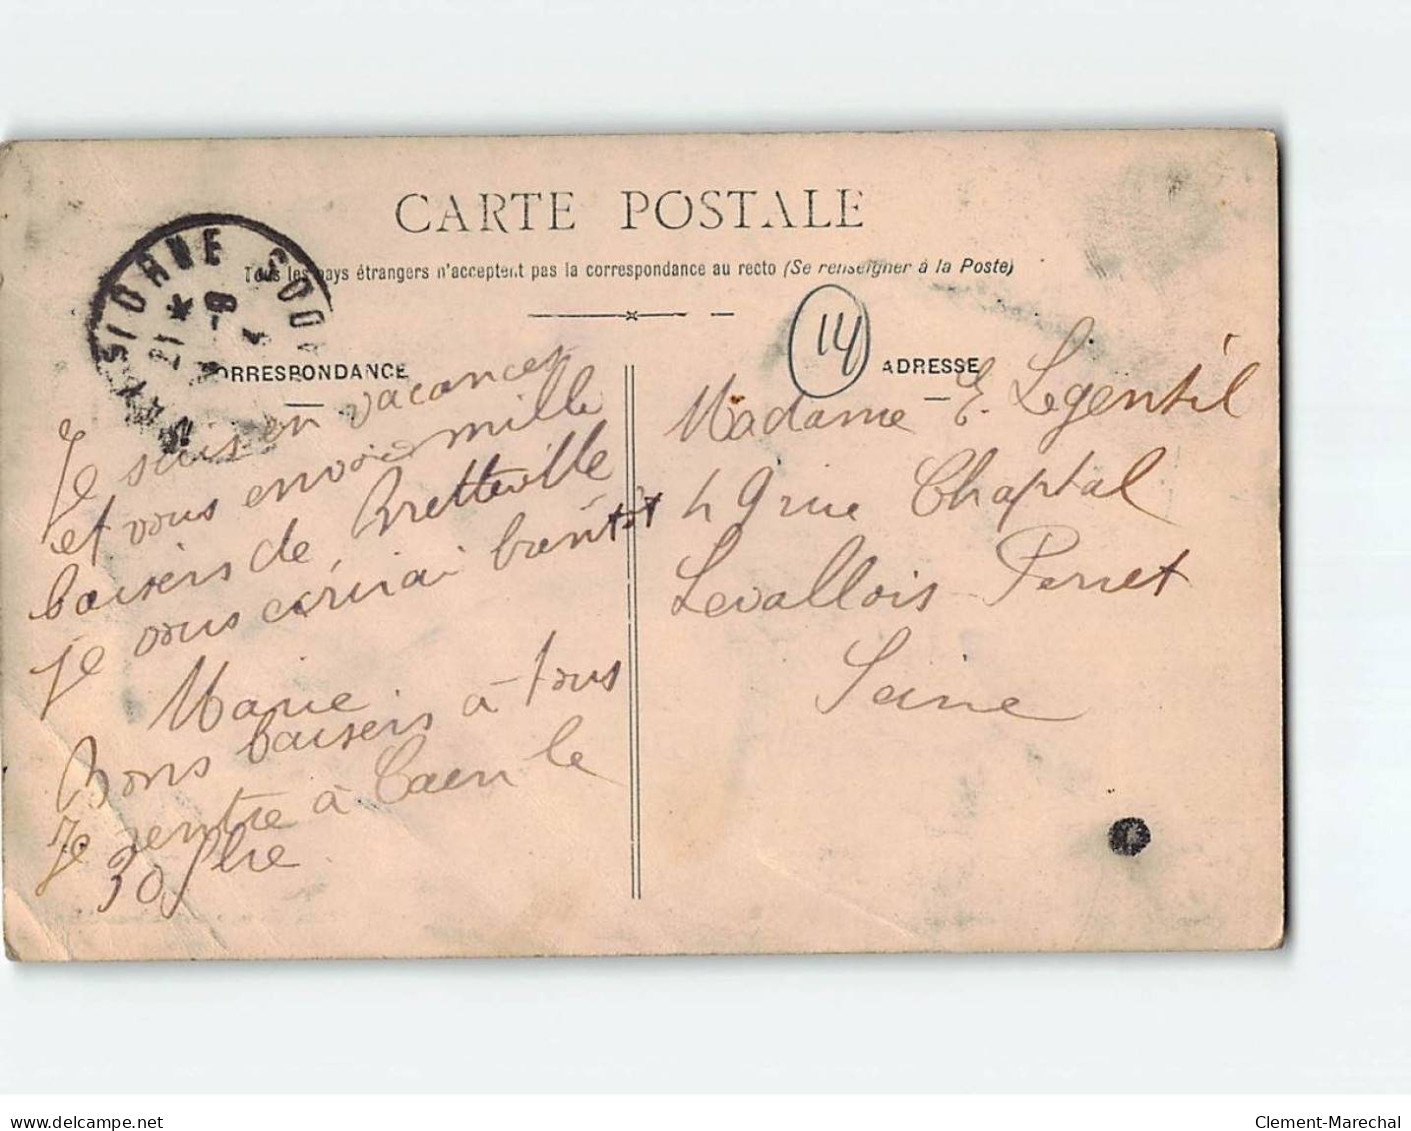 CARTE POSTALE
Tous les pays étrangers n'acceptent pas la correspondance au recto (Se renseigner à la Poste)
14
CORRESPONDANCE
ADRESSE
Je suis en vacances
et vous envoie mille
baisers de Bretteville
je vous écrirai bientôt
Marie
Bons baisers à tous
Je rentre à Caen le
30
Madame E. Legentil
49 rue Chaptal
Levallois-Perret
Seine
delcampe.net
Clement-Marechal